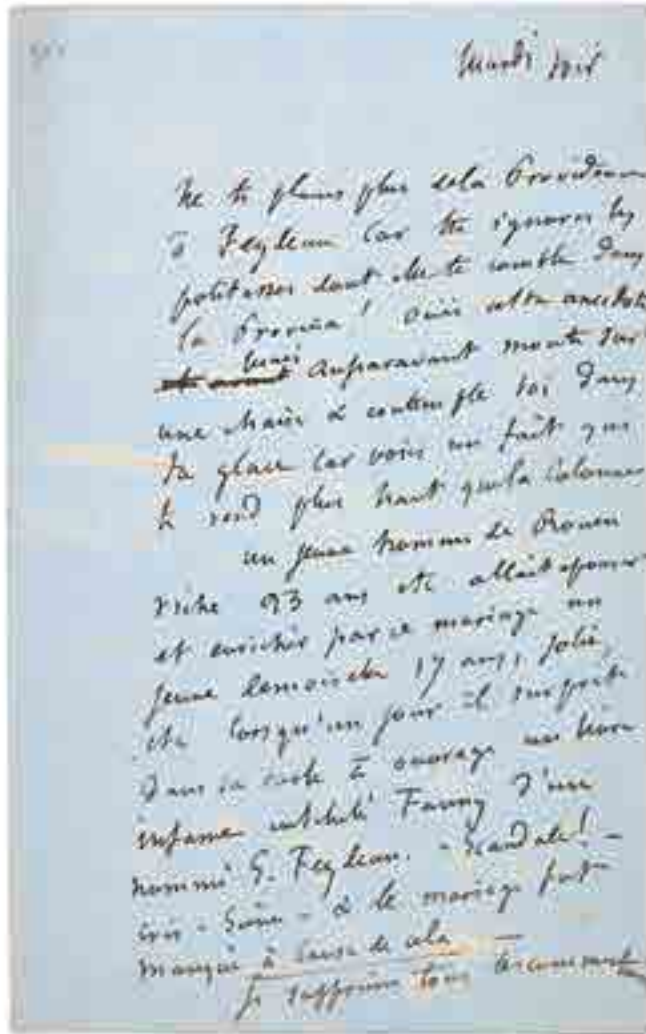 Mardi soir
Ne te plains plus de la Providence
ô Feydeau car tu ignores les
politesses dont elle te comble dans
la Province! Ouis cette anecdote
mais auparavant monte sur
une chaise & contemple toi dans
ta glace car voici un fait qui
te rend plus haut que la Colonne
un jeune homme de Rouen
riche 23 ans etc allait épouser
et enrichir par ce mariage une
jeune demoiselle 17 ans, jolie,
etc lorsqu'un jour il surprit
dans sa boîte à ouvrage un livre
infâme intitulé Fanny d'un
nommé E. Feydeau. - Scandale! -
cris - scène - & le mariage fut
manqué à cause de cela -
Je supprime tous commentaires